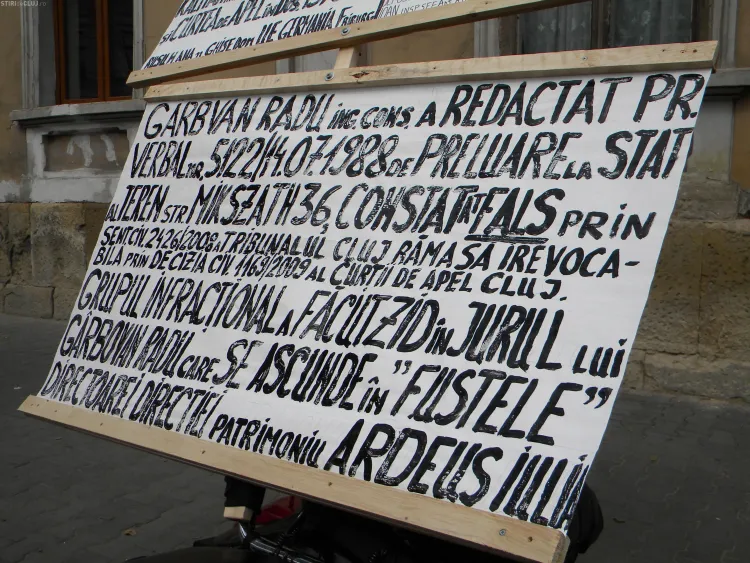 STIRIDECLUJ.RO
SĂ CURTEA DE APEL
GARBVAN RADU ING. CONS. A REDACTAT PR.
VERBAL NR. 5122/14.07.1988 DE PRELUARE LA STAT
AL TEREN STR. MIKSZATH 36, CONSTATAT FALS PRIN
SENT. CIV. 2426/2008 A TRIBUNALUL CLUJ RĂMASĂ IREVOCA-
BILĂ PRIN DECIZIA CIV. 1169/2009 AL CURȚII DE APEL CLUJ.
GRUPUL INFRACȚIONAL A FĂCUT ZID ÎN JURUL LUI
GÂRBOVAN RADU CARE SE ASCUNDE ÎN "FUSTELE"
DIRECTOAREI DIRECȚIEI PATRIMONIU ARDEUȘ IULIA